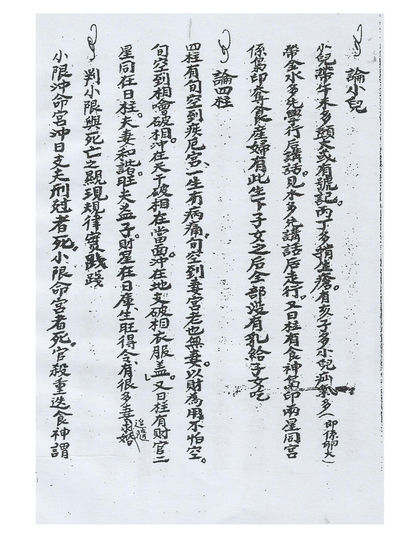 論小兒
小兒帶牛木多頭大或有號記。丙丁多稍生瘡。有亥子多小兒病氣多(即係卵大)
帶金水多先學行后講話。見木多先講話后走行。又日柱有食神萬印兩星同宮
係為印奪食産婦有此生下子女之后全部没有乳給子女吃
論四柱
四柱有旬空到疾厄宮、一生有病痛、旬空到妻宮老也無妻。以財為用不怕空。
旬空到相喻破相。沖在天干破相在當面沖在地支破相衣服蓋」。又日柱有財官二
星同在日柱。夫妻和諧旺夫益子財星在日庫生旺得令有很多妻
判小限與死亡之顯現規律實踐踐
小限沖命宮沖日支天刑尅者死。小限命宮者死。官殺重迭食神謂